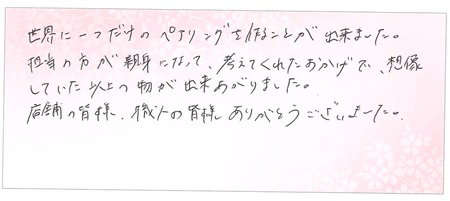 世界に一つだけのペアリングを作ることが出来ました。
担当の方が親身になって、考えてくれたおかげで、想像
していた以上の物が出来あがりました。
店舗の皆様、職人の皆様ありがとうございました。